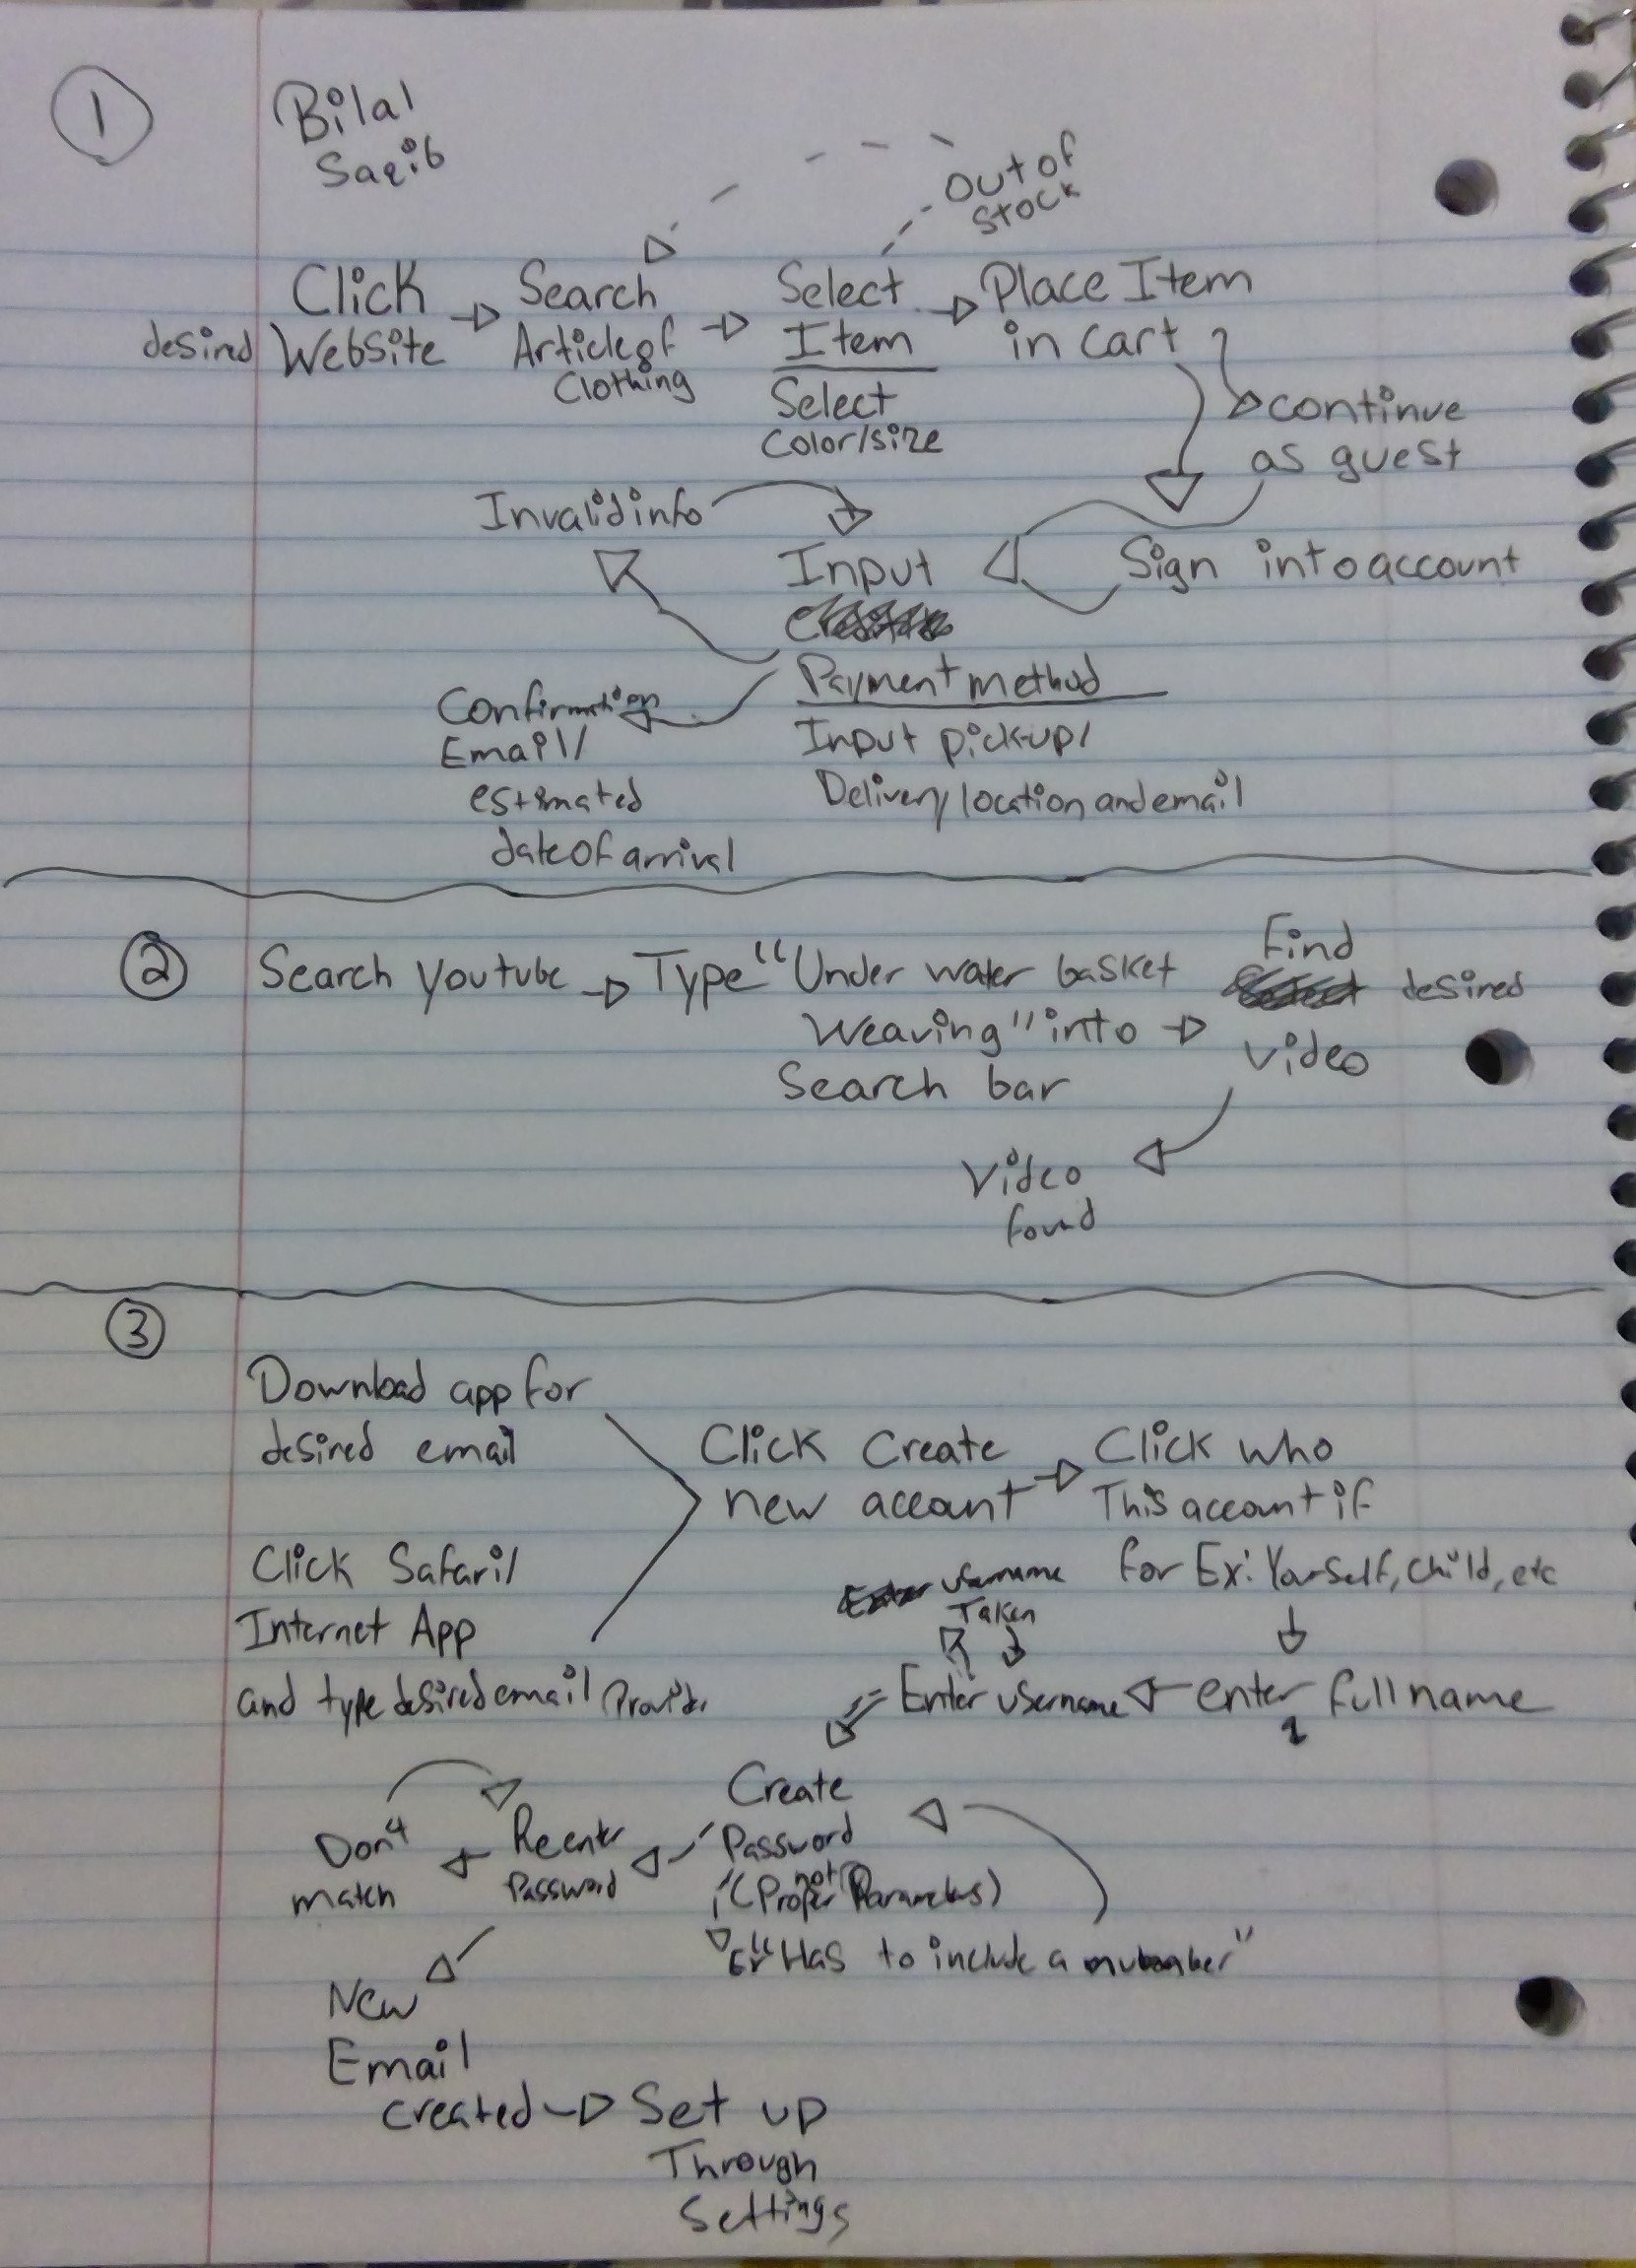 1
Bilal
Saqib
Out of
stock
Click
desired Website
Search
Article of
Clothing
Select
Item
Select
Color/size
Place Item
in cart
continue
as guest
Sign into account
Invalid info
Input
Payment method
Input pick-up/
Delivery location and email
Confirmation
Email/
estimated
date of arrival
2
Search youtube
Type "Under water basket
Weaving" into
Search bar
Find
desired
video
Video
found
3
Download app for
desired email
Click Safari/
Internet App
and type desired email Provider
Click Create
new account
Click who
This account if
for Ex: Yourself, child, etc
enter full name
Enter username
username
Taken
Create
Password
(not Proper Parameters)
Ex "Has to include a number"
Reenter
Password
Don't
match
New
Email
created
Set up
Through
Settings